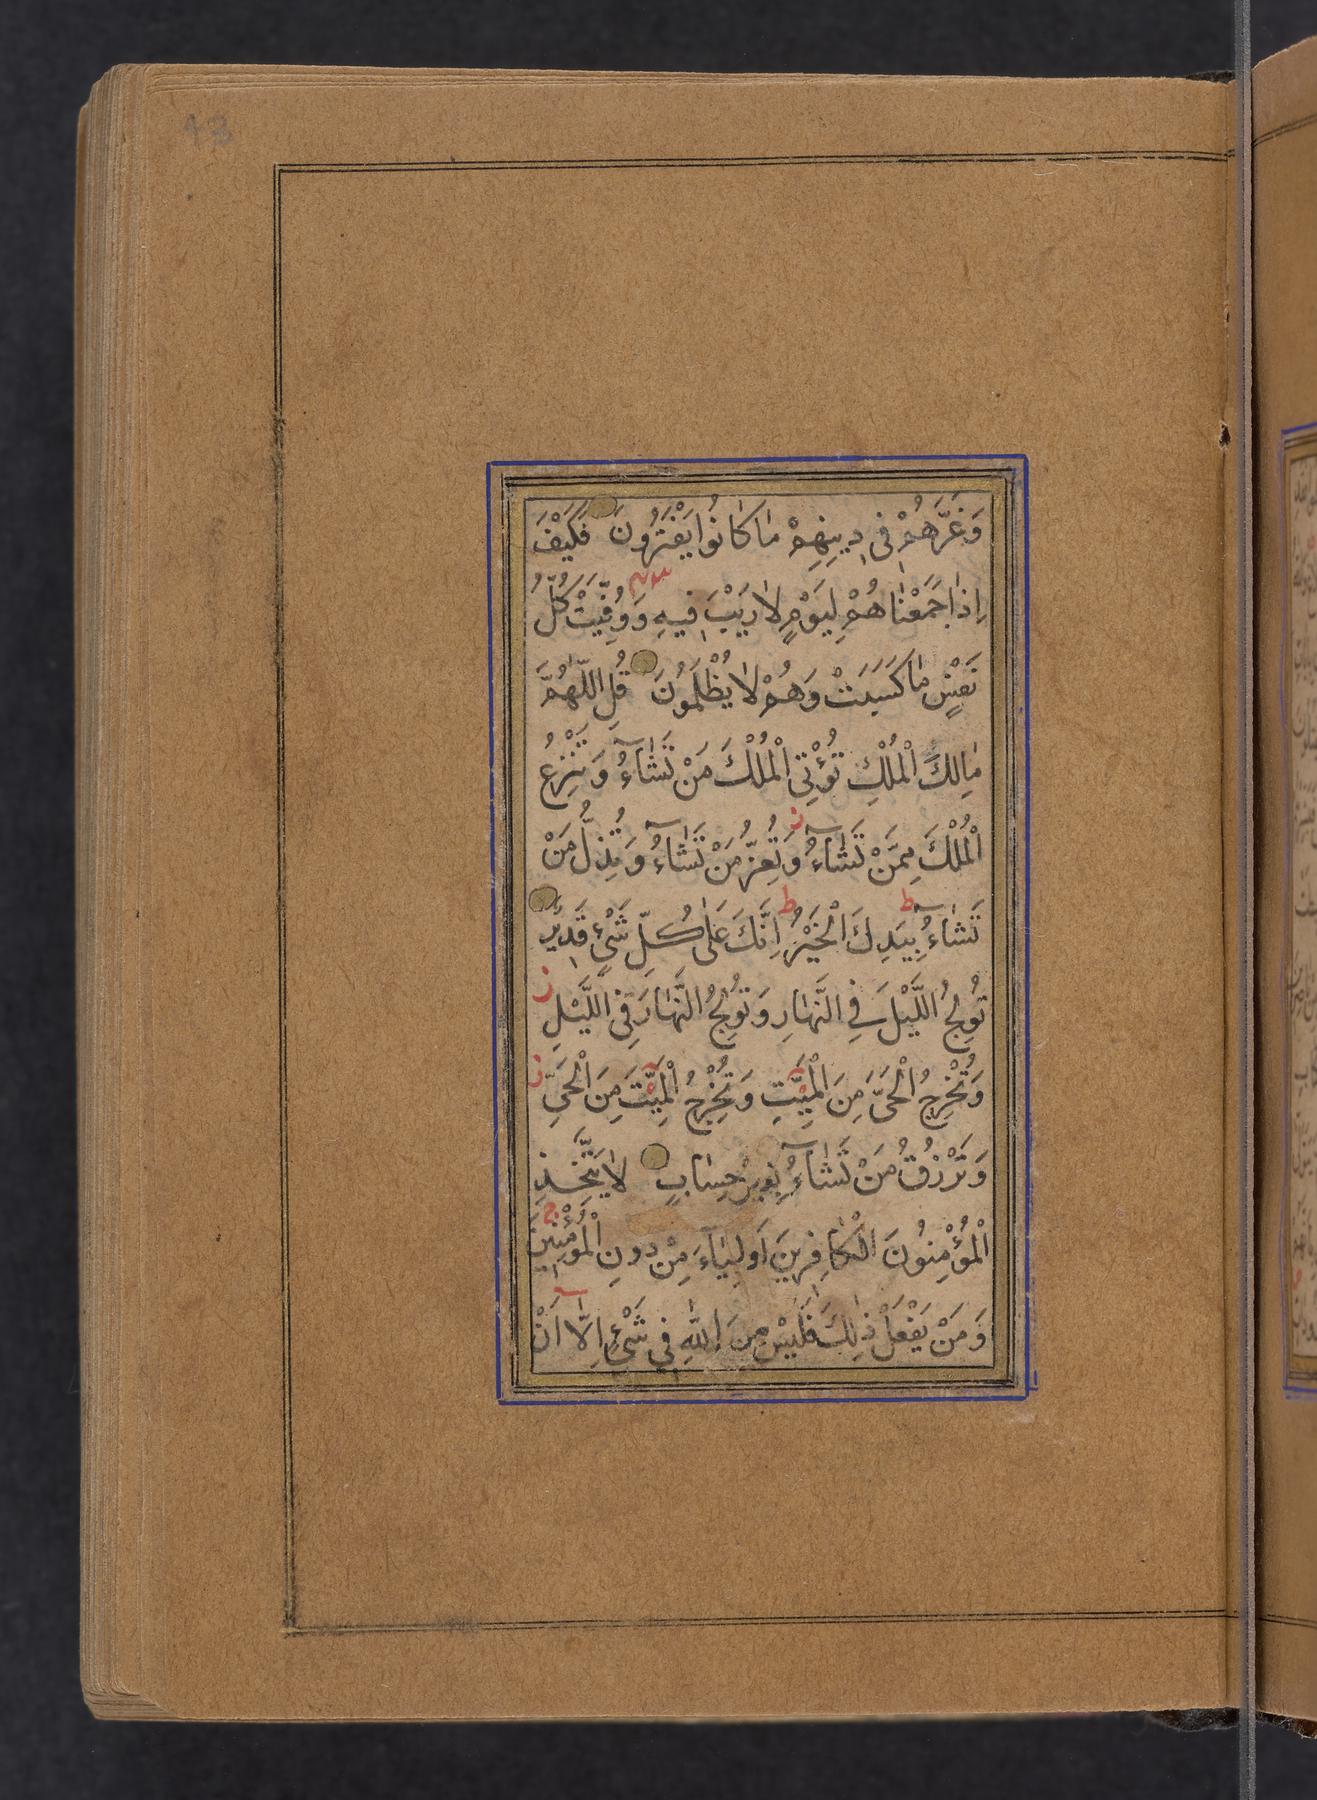 43
وَغَرَّهُمْ فِي دِينِهِمْ مَا كَانُوا يَفْتَرُونَ فَكَيْفَ
اِذَا جَمَعْنَاهُمْ لِيَوْمٍ لَا رَيْبَ فِيهِ وَوُفِّيَتْ كُلُّ
نَفْسٍ مَا كَسَبَتْ وَهُمْ لَا يُظْلَمُونَ قُلِ اللّٰهُمَّ
مَالِكَ الْمُلْكِ تُؤْتِي الْمُلْكَ مَنْ تَشَآءُ وَتَنْزِعُ
الْمُلْكَ مِمَّنْ تَشَآءُ ز وَتُعِزُّ مَنْ تَشَآءُ وَتُذِلُّ مَنْ
تَشَآءُ ط بِيَدِكَ الْخَيْرُ ط اِنَّكَ عَلٰى كُلِّ شَيْءٍ قَدِيرٌ
تُولِجُ اللَّيْلَ فِي النَّهَارِ وَتُولِجُ النَّهَارَ فِي اللَّيْلِ ز
وَتُخْرِجُ الْحَيَّ مِنَ الْمَيِّتِ وَتُخْرِجُ الْمَيِّتَ مِنَ الْحَيِّ ز
وَتَرْزُقُ مَنْ تَشَآءُ بِغَيْرِ حِسَابٍ لَا يَتَّخِذِ
الْمُؤْمِنُونَ الْكَافِرِينَ اَوْلِيَآءَ مِنْ دُونِ الْمُؤْمِنِينَ ج
وَمَنْ يَفْعَلْ ذٰلِكَ فَلَيْسَ مِنَ اللّٰهِ فِي شَيْءٍ اِلَّآ اَنْ